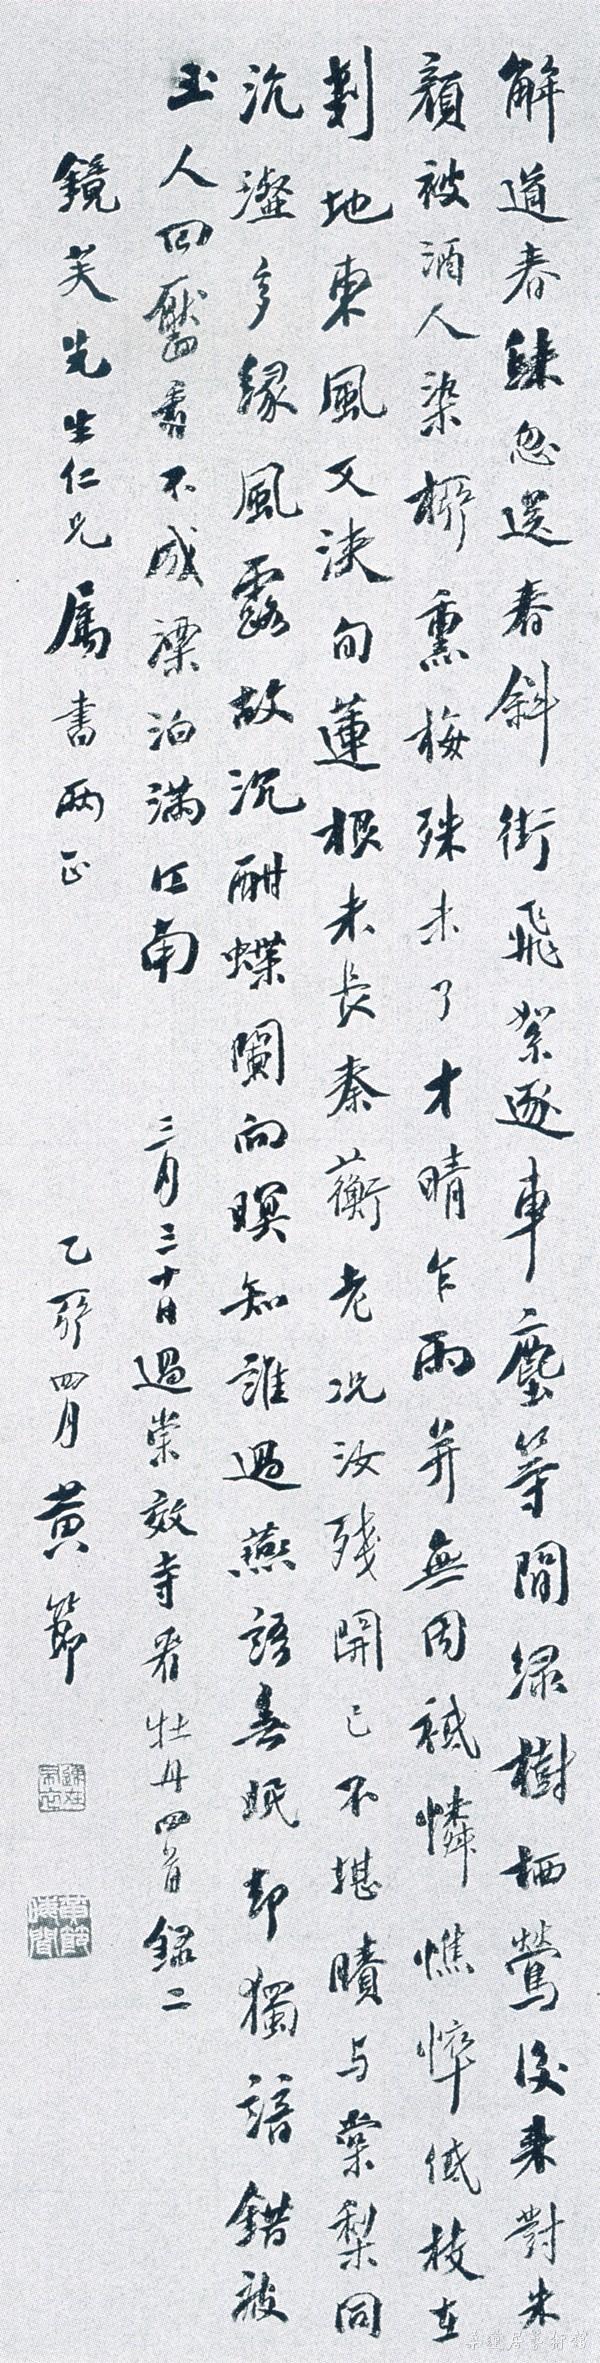 解道春歸忽送春斜街飛絮逐車塵等閒綠樹栖鶯後來對朱
顏被酒人染柳熏梅殊未了才晴乍雨并無因祗憐憔悴低枝在
剗地東風又浹旬蓮根未長秦蘅老况汝殘開已不堪賸与棠梨同
沆瀣多緣風露故沉酣蝶闌向暝知誰過燕語無眠却獨諳錯被
玉人回靨看不成漂泊滿江南
三月三十日過崇效寺看牡丹四首錄二
鏡芙先生仁兄屬書兩正
乙卯四月黄節